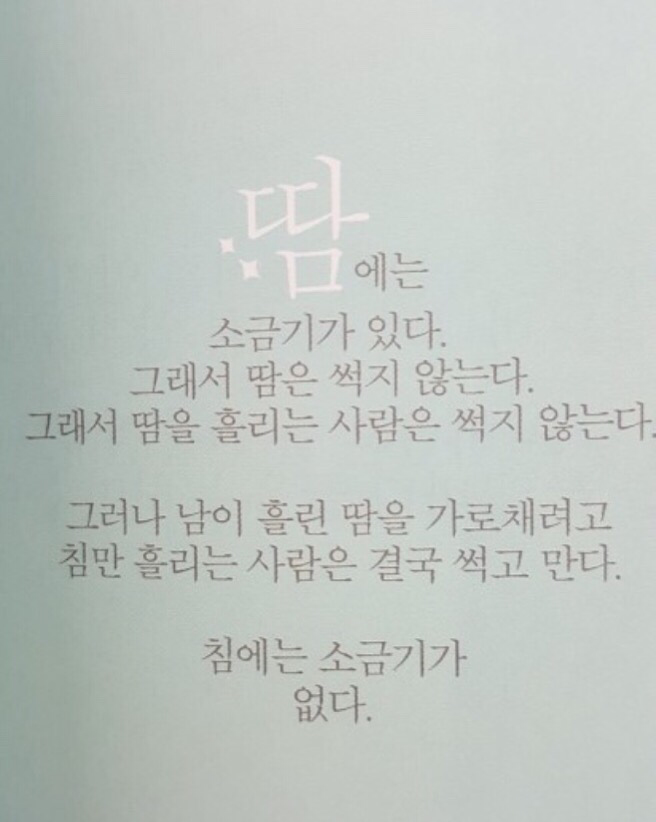 땀에는
소금기가 있다.
그래서 땀은 썩지 않는다.
그래서 땀을 흘리는 사람은 썩지 않는다.
그러나 남이 흘린 땀을 가로채려고
침만 흘리는 사람은 결국 썩고 만다.
침에는 소금기가
없다.